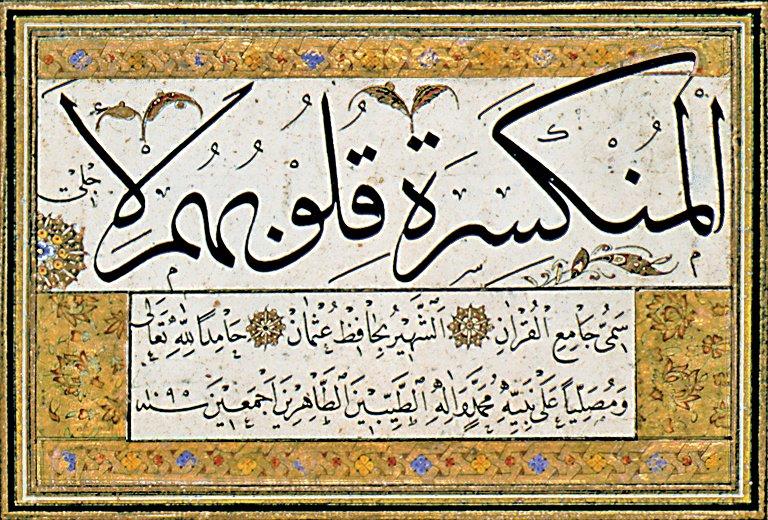 المنكسرة قلوبهم لا
جلي
سمي جامع القرآن الشهير بحافظ عثمان حامدًا لله تعالى
ومصليًا على نبيه محمد وآله الطيبين الطاهرين أجمعين سنة